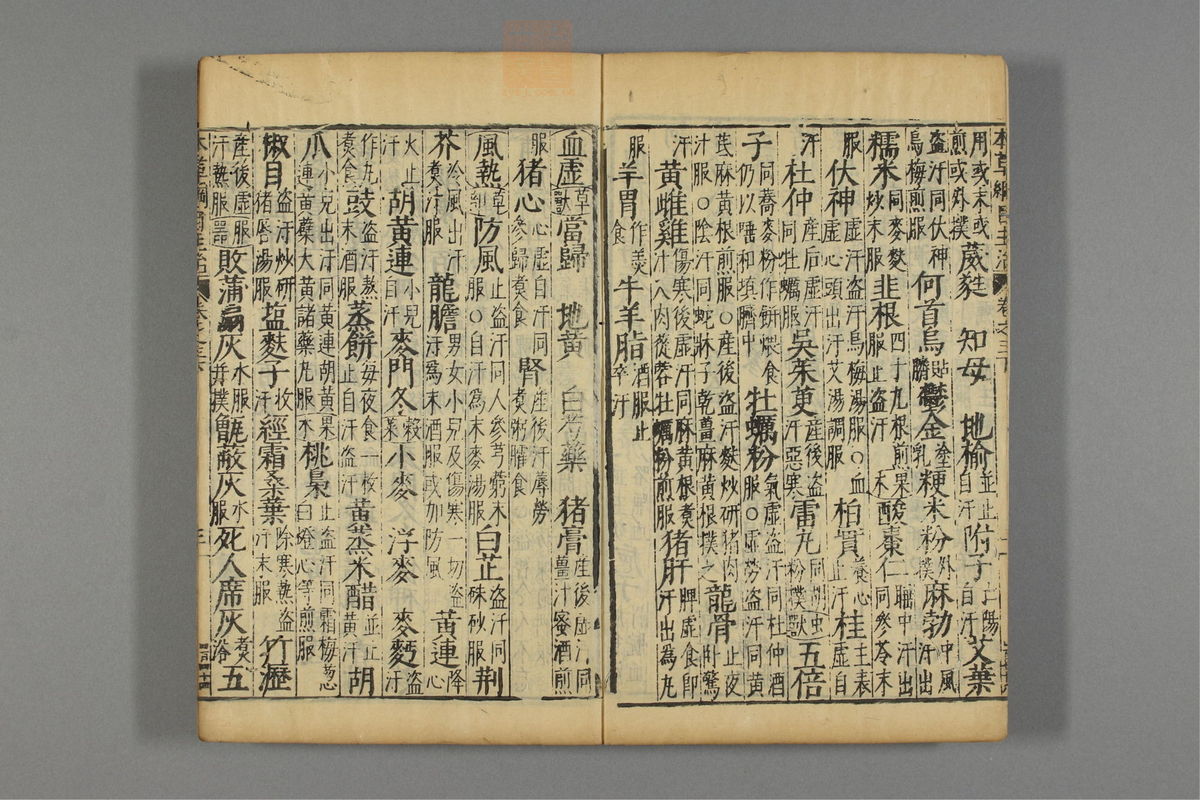 用或末或煎或外撲葳蕤 知母 地榆並止自汗附子亡陽自汗艾葉
盜汗同伏神烏梅煎服何首烏貼臍鬱金塗乳粳米粉外撲麻勃中風汗出
糯米同麥麩炒末服韭根四十九根煎服止盜汗果木酸棗仁睡中汗出同參苓末
服伏神虛汗盜汗烏梅湯服○血虛心頭出汗艾湯調服柏實養心止汗桂主表虛自
汗杜仲產后虛汗同牡蠣服吳茱萸產後盜汗惡寒雷丸同胡粉撲虫獸五倍
子同蕎麥粉作餅煨食仍以唾和填臍中牡蠣粉氣虛盜汗同杜仲酒服○虛勞盜汗同黃
芪麻黃根煎服○產後盜汗麩炒研猪肉汁服○陰汗同蛇牀子乾薑麻黃根撲之龍骨止夜臥驚
汗黃雌雞傷寒後虛汗同麻黃根煮汁入肉蓯蓉牡蠣粉煎服猪肝脾虛食即汗出為丸
服羊胃作羹食牛羊脂酒服止卒汗
血虛草獸當歸 地黃 白芍藥 猪膏產後虛汗同薑汁蜜酒煎
服猪心心虛自汗同參歸煮食腎產後汗蓐勞煮粥臛食
風熱草防風止盜汗同人參芎藭末服○自汗為末麥湯服白芷盜汗同硃砂服荆
芥冷風出汗煮汁服龍膽男女小兒及傷寒一切盜汗為末酒服或加防風黃連降心
火止汗胡黃連小兒自汗麥門冬穀菜小麥 浮麥 麥麪盜汗
作丸煮食豉盜汗熬末酒服蒸餅每夜食一枚止自汗盜汗黃蒸米醋並止黃汗胡
瓜小兒出汗同黃連胡黃連黃蘗大黃諸藥丸服果木桃梟止盜汗同霜梅葱白燈心等煎服
椒目盜汗炒研猪唇湯服塩麩子收汗經霜桑葉除寒熱盜汗末服竹瀝
產後虛汗熱服服器敗蒲扇灰水服并撲甑蔽灰水服死人席灰煮浴五